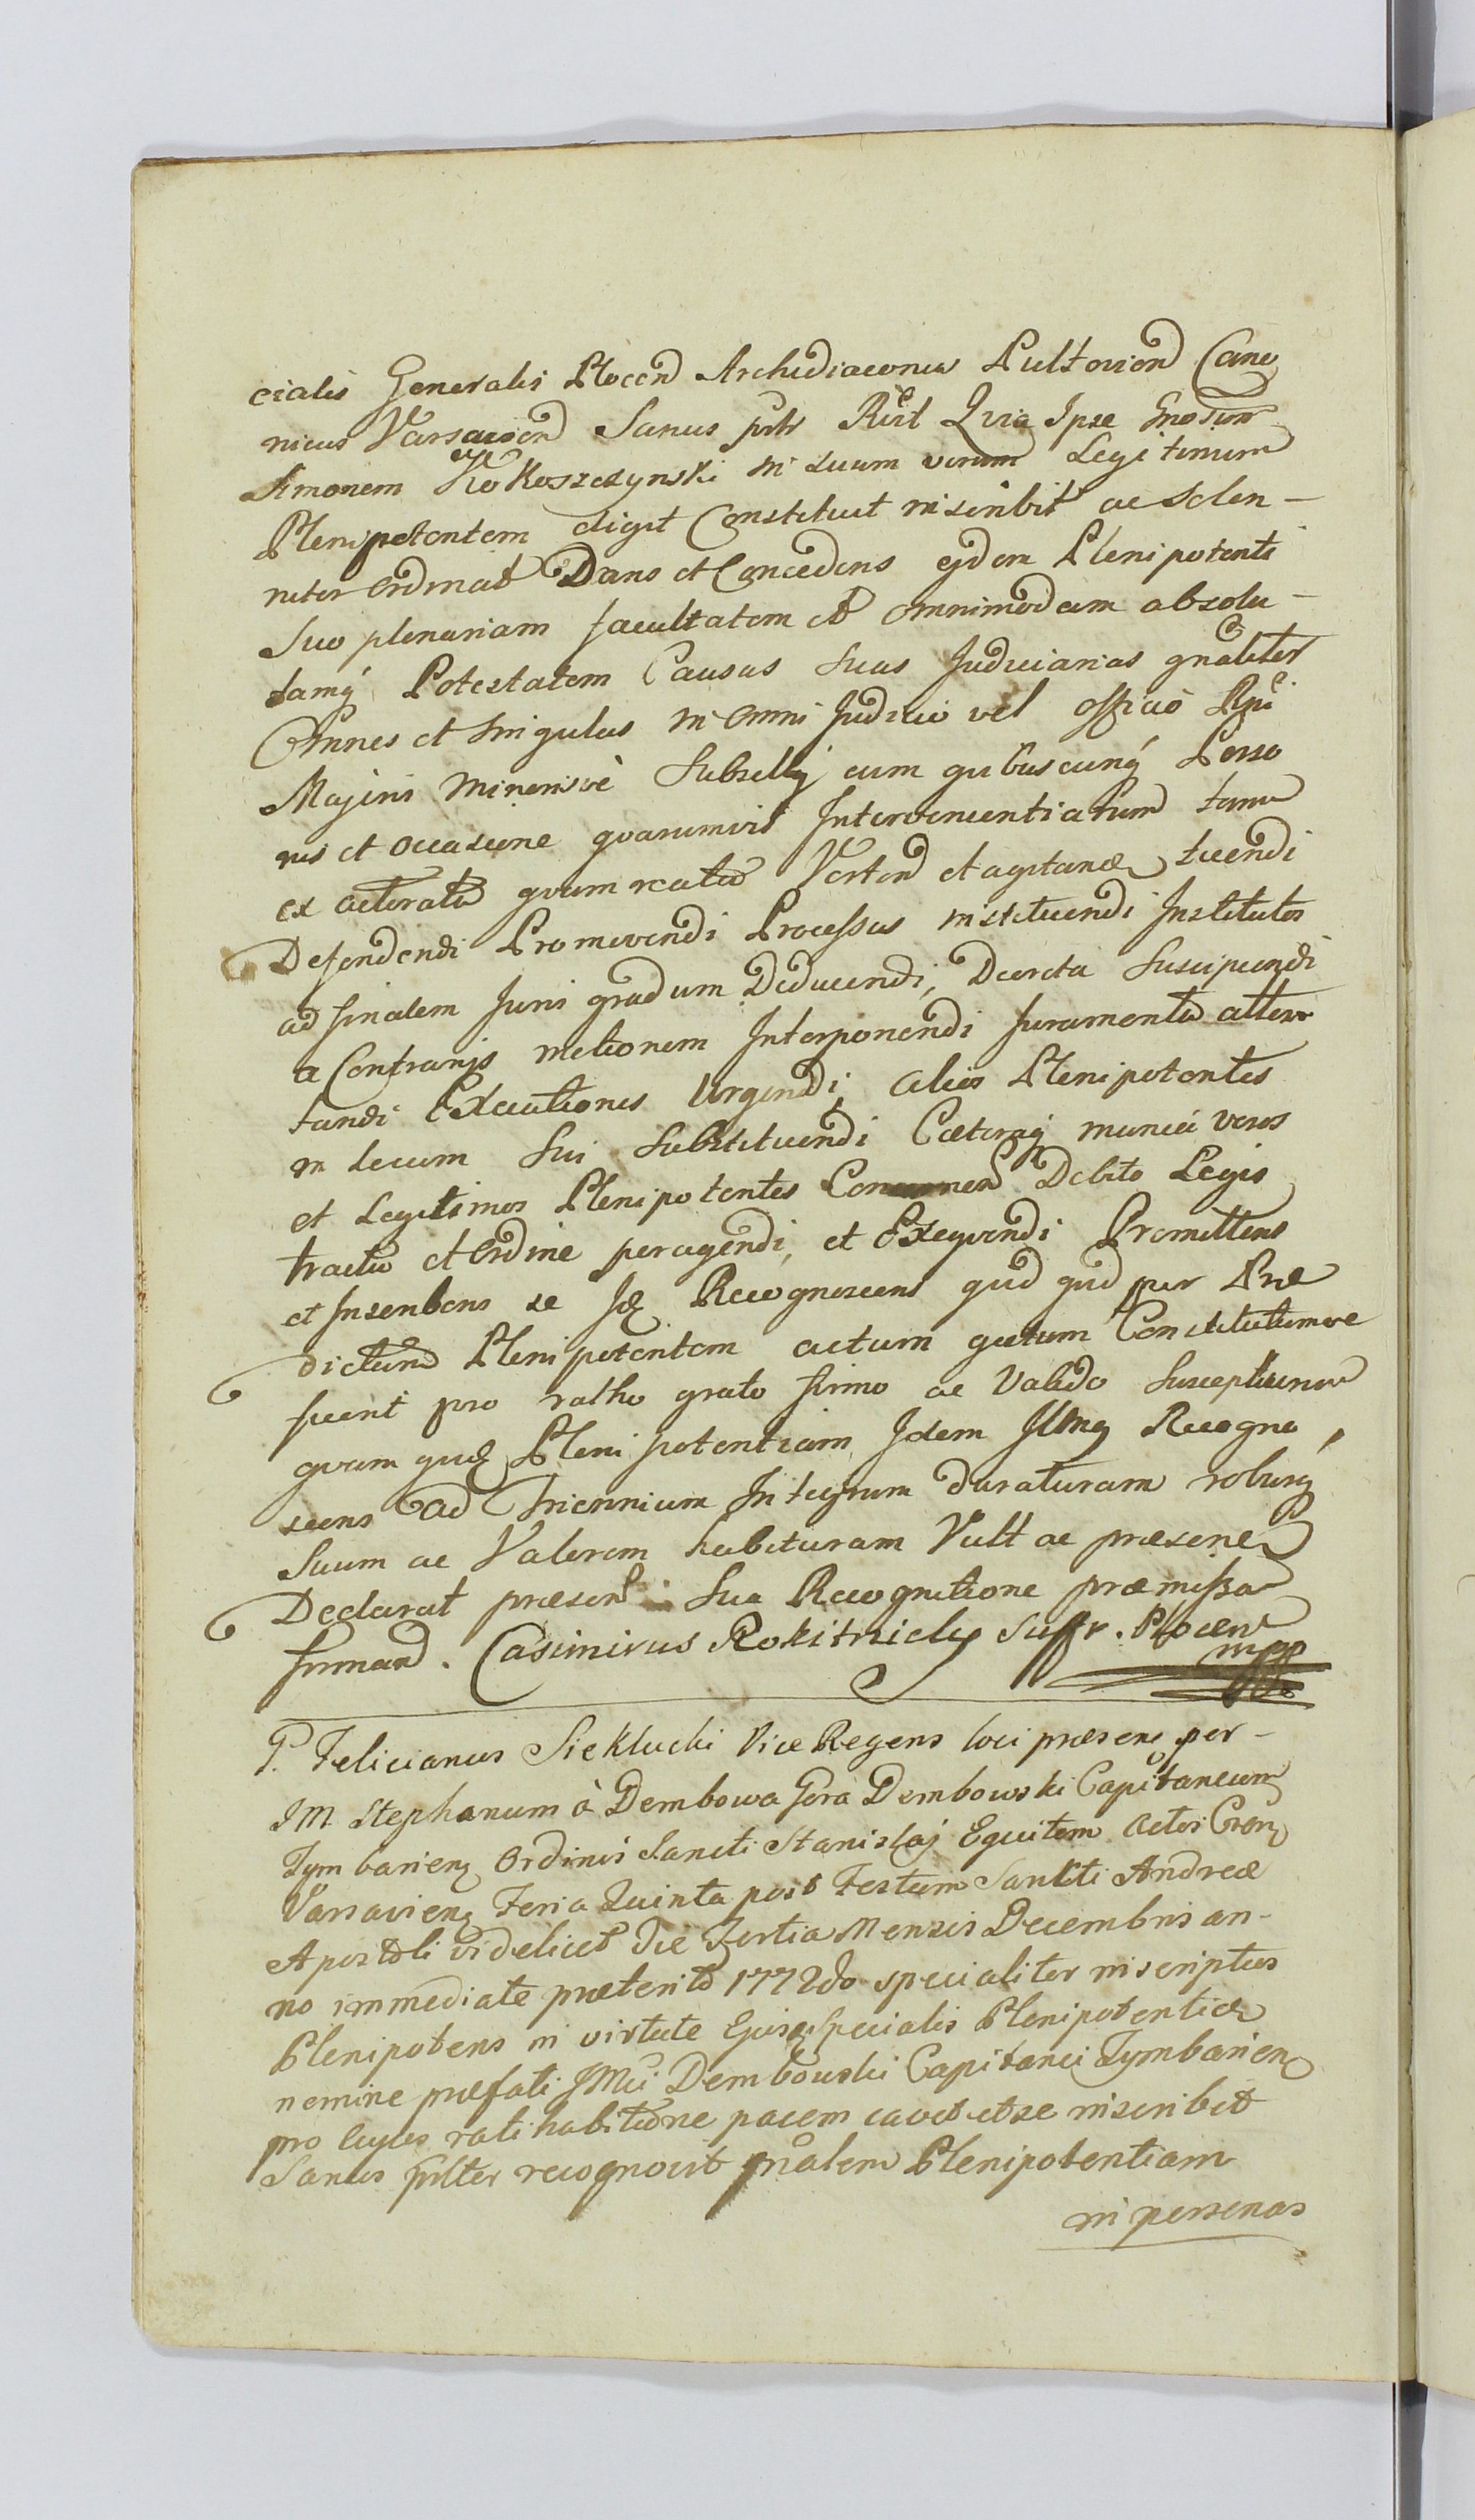 cialis Generalis Plocen Archidiaconus Pultovien Cano
nicus Varsavien Sanus Quia Ipse Gnosum
Simonem Kokoszczynski in suum verum Legitimum
Plenipotentem eligit Constituit inscribit ac solen-
niter Ordinat Dans et Concedens ejdem Plenipotenti
Suo plenariam facultatem et omnimodam absolu-
tamq Potestatem Causas suas Judiciarias gnaliter
Omnes et singulas in Omni Judicio vel officio Rgni
Majoris Minorisve Subsellij cum quibuscunq Perso
nis et occasione quarumvis Interveniential tam
ex actoratu quam reatu Verten et agitan tuendi
Defendendi Promovendi Processus instituendi Institutos
ad finalem Juris gradum Deducendi, Decreta Suscipiendi
a Contrarijs motionem Interponendi Juramenta attes
tandi Executiones Urgendi, alios Plenipotentes
in locum sui substituendi Cæteraq munia veros
et Legitimos Plenipotentes Debito Legis
tractu et Ordine peragendi, et Exequendi Promittens
et Inscribens se Recognoscens quid quid per Præ
dictum Plenipotentem actum gestum Constitutumve
fuerit pro ratho grato firmo ac Valido Suscepturum
quam quid Plenipotentiam Idem Recogno
scens ad Triennium Integrum duraturam roburq
Suum ac Valorem habituram Vult ac præsen
Declarat præsen Sua Recognitione præmissa
firman. Casimirus Rokitnicky Suffr. Plocen
mpp
P. Felicianus Sieklucki Vice Regens loci præsen per
IM. Stephanum à Dembowa Gora Dembowski Capitaneum
Tymbarien Ordinis Sancti Stanislaj Equitem Actis
Varsavien Feria Quinta post Festum Sancti Andreæ
Apostoli videlicet die Tertia Mensis Decembris an-
no immediate præterito 1772do specialiter inscriptus
Plenipotens in virtute Ejusq specialis Plenipotentiæ
nomine præfati IMci Dembowski Capitanei Tymbarien
pro cujus ratihabitione pacem cavet et se inscribit
Sanus recognovit gnalem Plenipotentiam
in personas